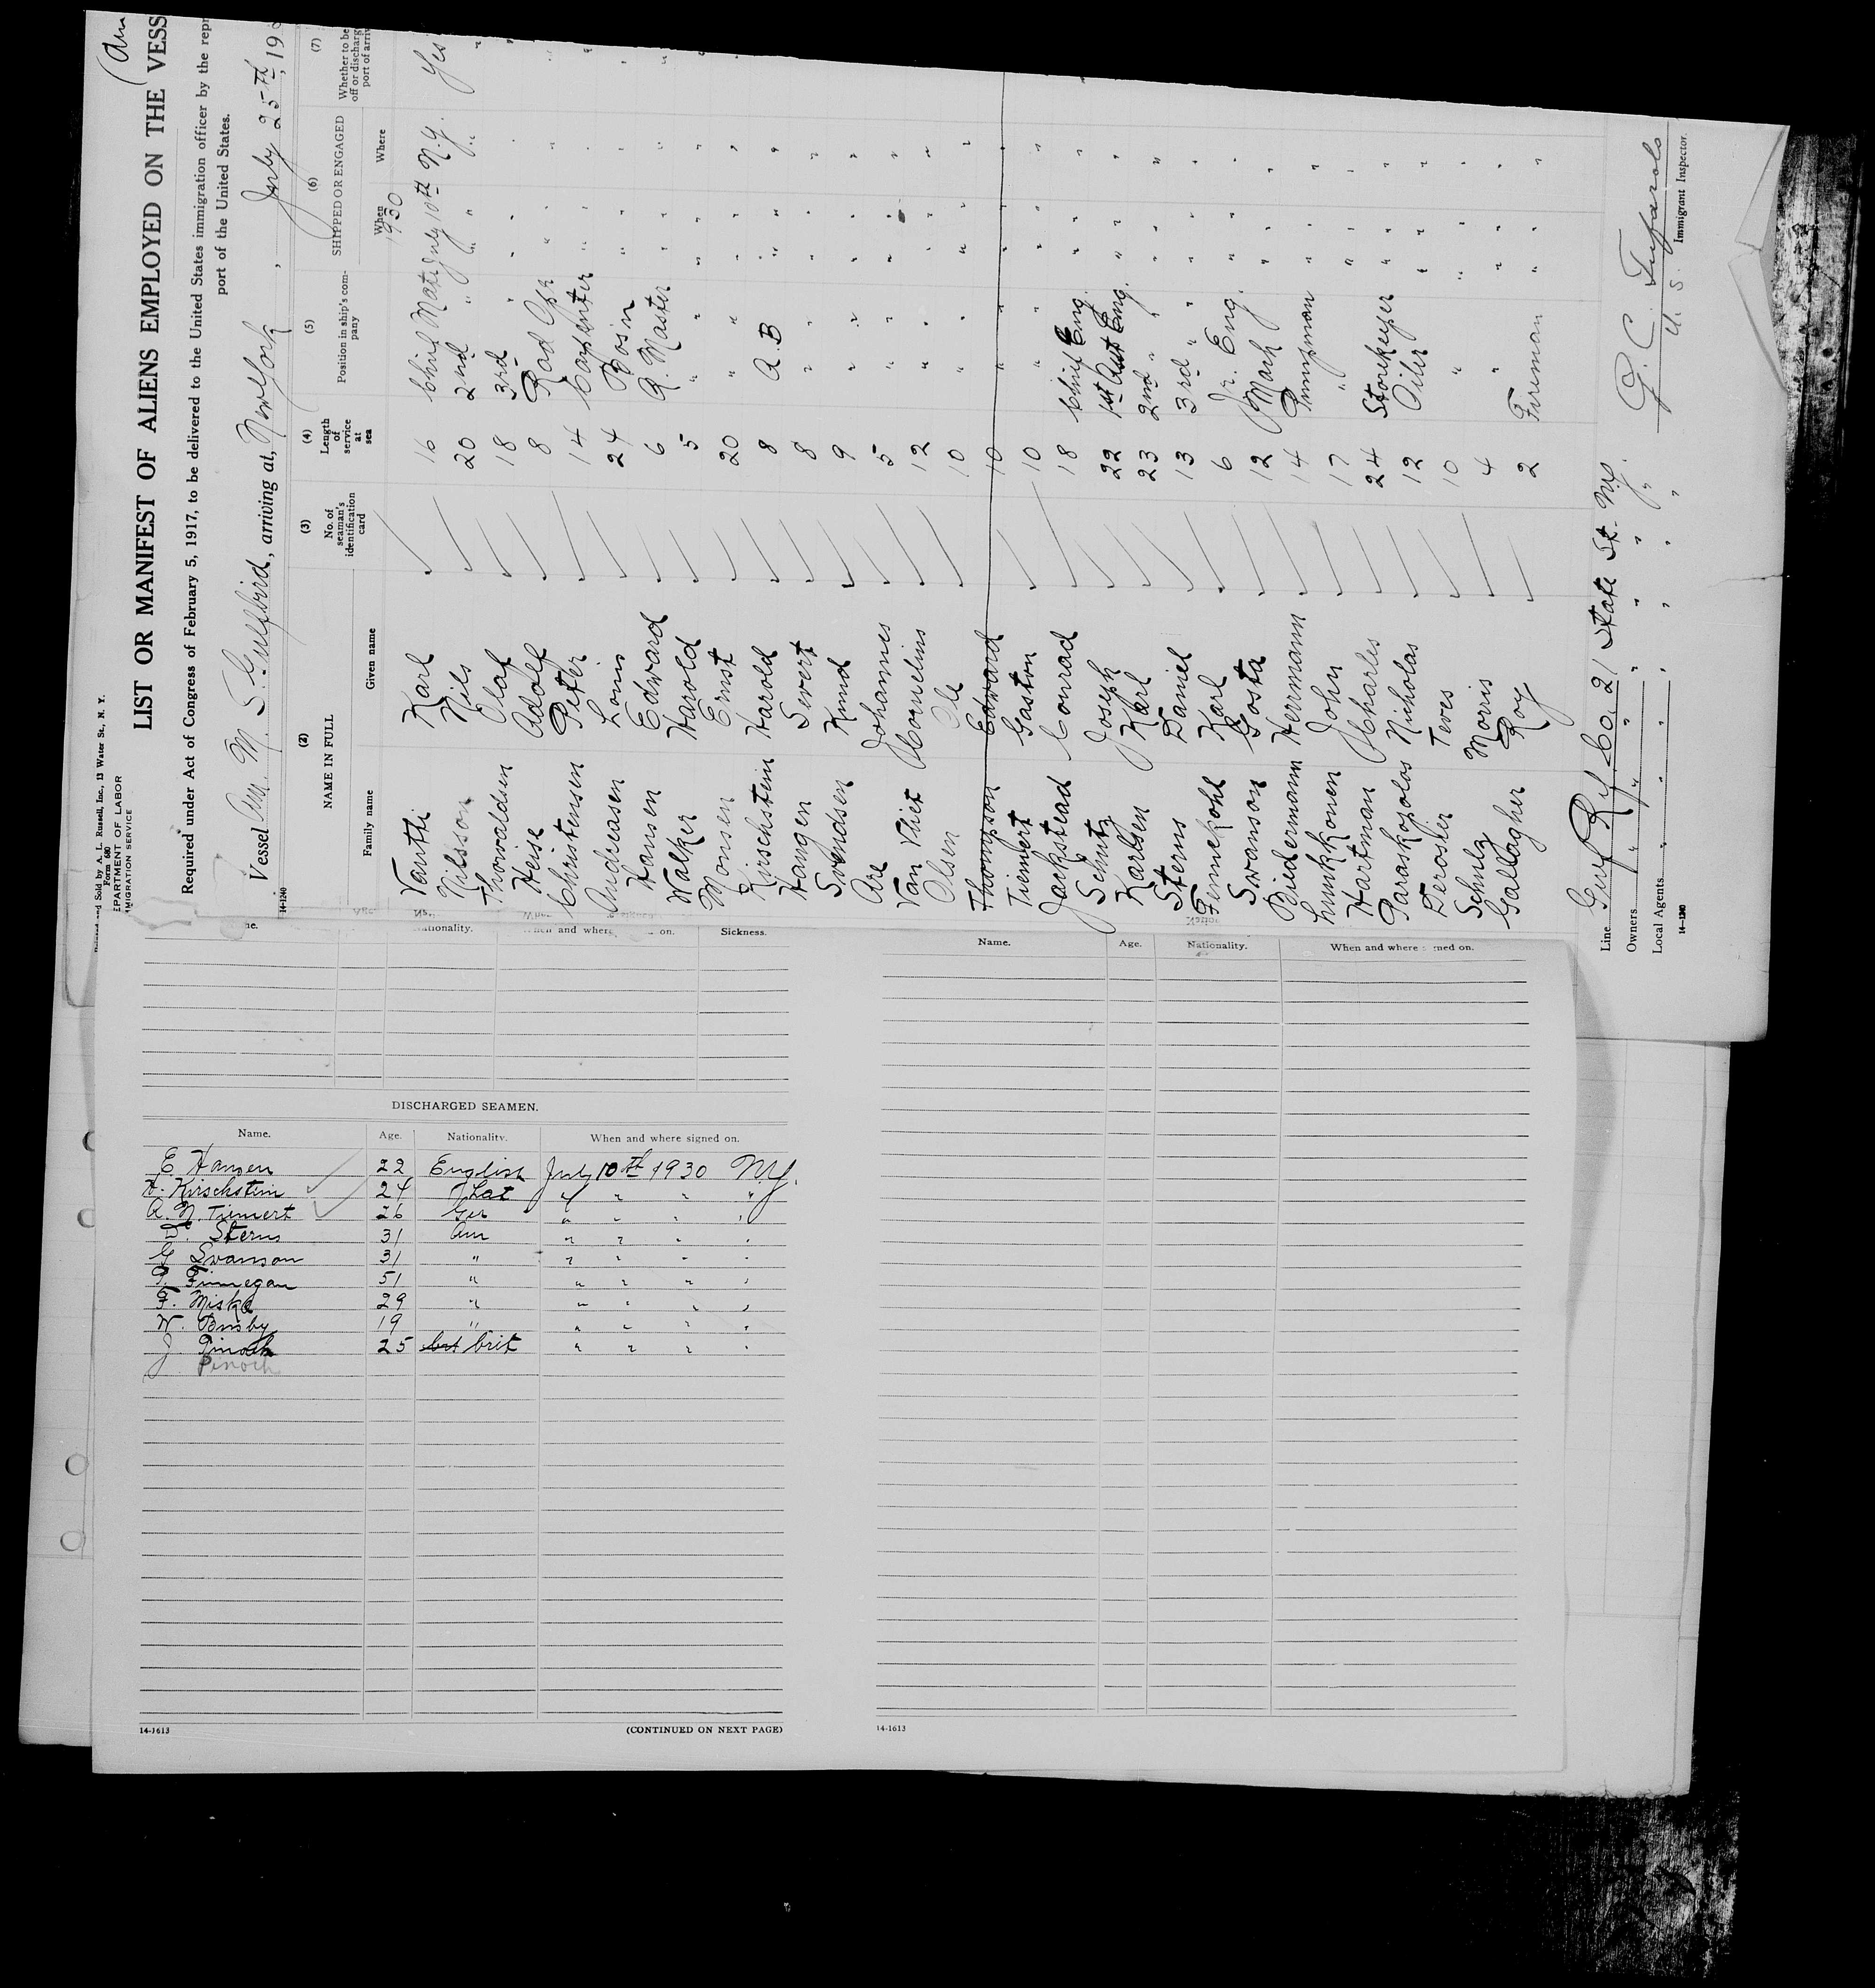 (Am
Printed and Sold by A. L. Russell, Inc., 13 Water St., N. Y.
Form 680
DEPARTMENT OF LABOR
IMMIGRATION SERVICE
LIST OR MANIFEST OF ALIENS EMPLOYED ON THE VESS
Required under Act of Congress of February 5, 1917, to be delivered to the United States immigration officer by the repr
port of the United States.
Vessel Am. M. S. Gulfbird, arriving at, New York, July 25th, 19
14-1240
(2) (3) (4) (5) (6) (7)
NAME IN FULL No. of seaman's identification card Length of service at sea Position in ship's company SHIPPED OR ENGAGED Whether to be off or discharge port of arriv
Family name Given name When Where
1930
Vantti Karl 16 Chief Mate July 10th N.Y. Yes
Nilsson Nils 20 2nd " " " "
Thorwaldsen Olaf 18 3rd " " " "
Heise Adolf 8 Rad Opr " " "
Christensen Peter 14 Carpenter " " "
Andreasen Louis 24 Bos'n " " "
Hansen Edward 6 Q. Master " " "
Walker Harold 5 " " " " "
Monsen Ernst 20 " " " " "
Kirschstein Harold 8 A.B " " "
Haugen Severt 8 " " " " "
Svendsen Knud 9 " " " " "
Are Johannes 5 " " " " "
Van Vliet Cornelius 12 " " " " "
Olsen Ole 10 " " " " "
Thompson Edward 10 " " " " "
Tiemert Gaston 10 " " " " "
Jackstead Conrad 18 Chief Eng. " " "
Schutz Joseph 22 1st Asst Eng. " " "
Karlsen Karl 23 2nd " " " " "
Sterns Daniel 13 3rd " " " " "
Finnekohl Karl 6 Jr. Eng. " " "
Swanson Gosta 12 Mach " " "
Biedermann Herrmann 14 Pumpman " " "
Lunkkonen John 17 " " " "
Hartman Charles 24 Storekeeper " " "
Paraskopolos Nicholas 12 Oiler " " "
Derosher Teves 10 " " " "
Schulz Morris 4 " " " "
Gallagher Roy 2 Fireman " " "
Line Gulf Ref Co. 21 State St. N.Y.
Owners " " " " " " "
Local Agents " " " " " " "
14-1240
G. C. Tufarolo
U. S. Immigrant Inspector.
me. Age. Nationality. When and where on. Sickness.
DISCHARGED SEAMEN.
Name. Age. Nationality. When and where signed on.
E. Hansen 22 English July 10th 1930 N.Y.
H. Kirschstein 24 Lat " " " "
A. N. Tiemert 26 Ger " " " "
D. Sterns 31 Am " " " "
G. Swanson 31 " " " " "
P. Finnegan 51 " " " " "
F. Miska 29 " " " " "
W. Busby 19 " " " " "
J. Pinoch 25 brit " " " "
Pinoch
14-1613 (CONTINUED ON NEXT PAGE)
Name. Age. Nationality. When and where signed on.
14-1613